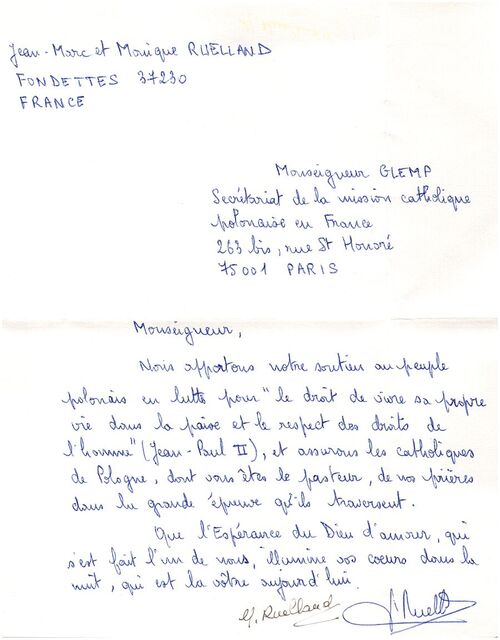 Jean-Marc et Monique RUELLAND
FONDETTES 37230
FRANCE
Monseigneur GLEMP
Secrétariat de la mission catholique
polonaise en France
263 bis, rue St Honoré
75001 PARIS
Monseigneur,
Nous apportons notre soutien au peuple
polonais en lutte pour "le droit de vivre sa propre
vie dans la paix et le respect des droits de
l'homme" (Jean-Paul II), et assurons les catholiques
de Pologne, dont vous êtes le pasteur, de nos prières
dans la grande épreuve qu'ils traversent.
Que l'Espérance du Dieu d'amour, qui
s'est fait l'un de nous, illumine vos coeurs dans la
nuit, qui est la vôtre aujourd'hui.
M. Ruelland